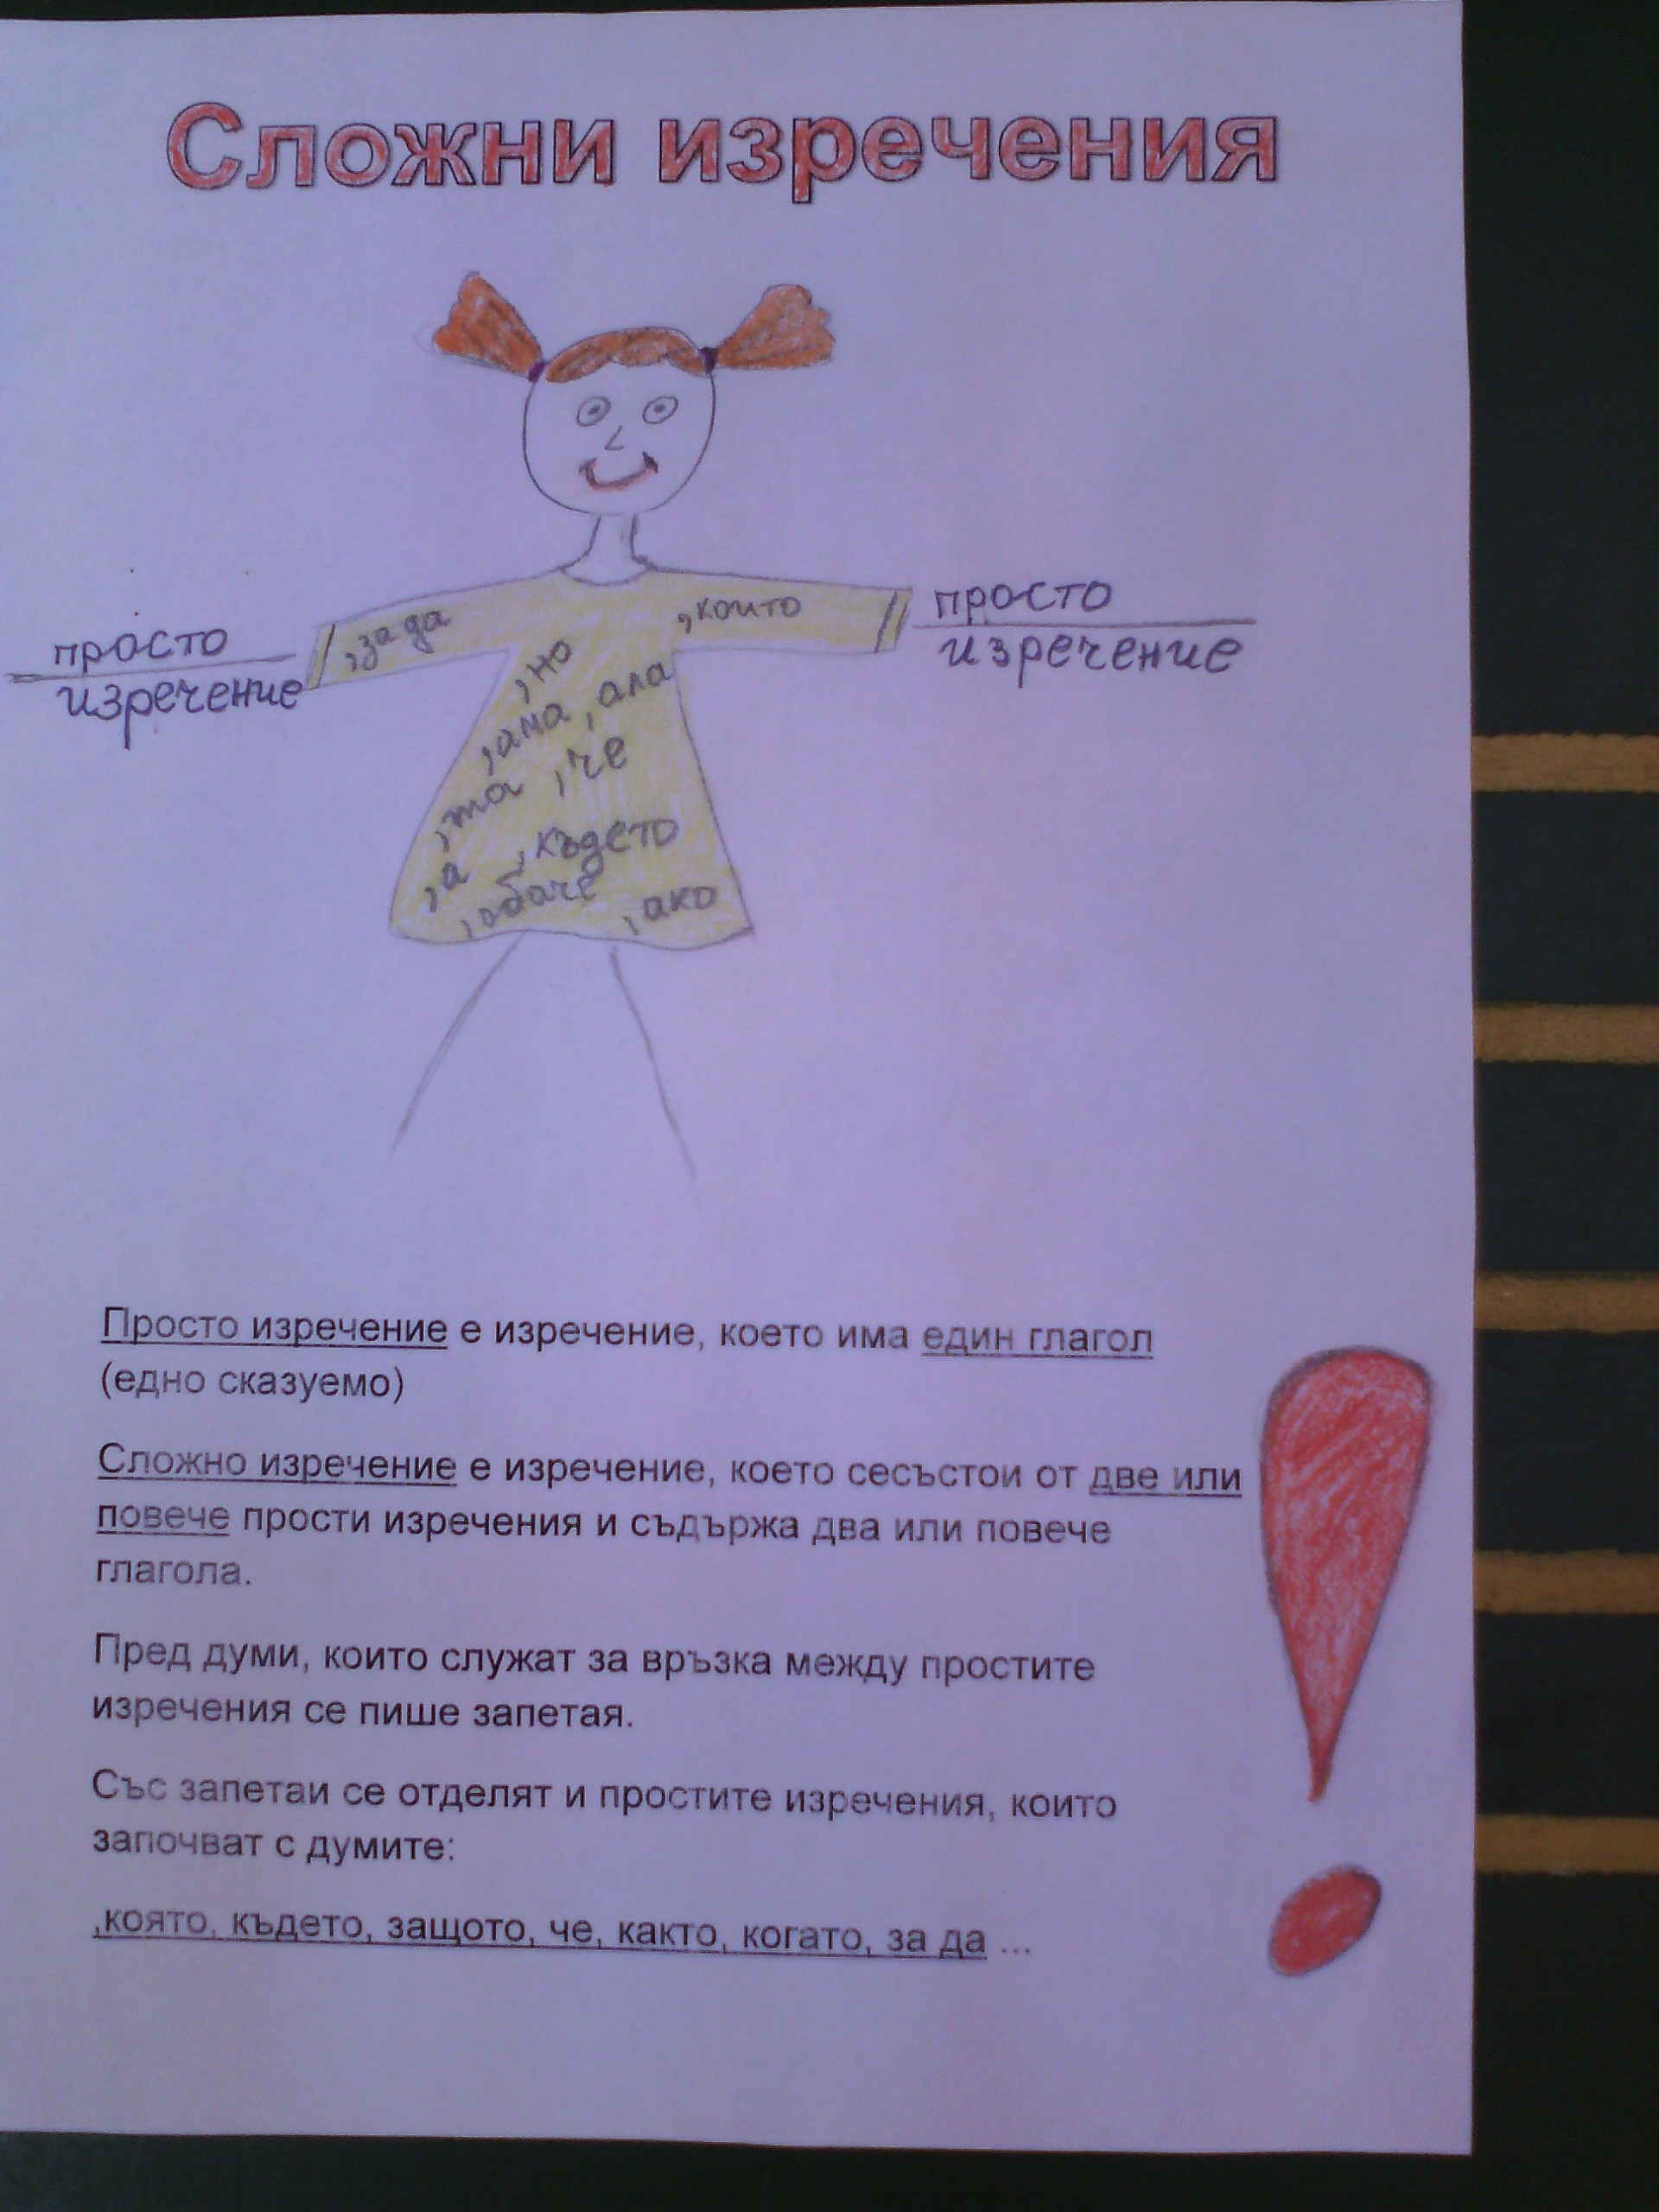 Сложни изречения
просто
изречение
,за да
,които
просто
изречение
,но
,ама ,ала
,та ,че
,а ,където
,обаче ,ако
Просто изречение е изречение, което има един глагол
(едно сказуемо)
Сложно изречение е изречение, което сесъстои от две или
повече прости изречения и съдържа два или повече
глагола.
Пред думи, които служат за връзка между простите
изречения се пише запетая.
Със запетаи се отделят и простите изречения, които
започват с думите:
,която, където, защото, че, както, когато, за да ...